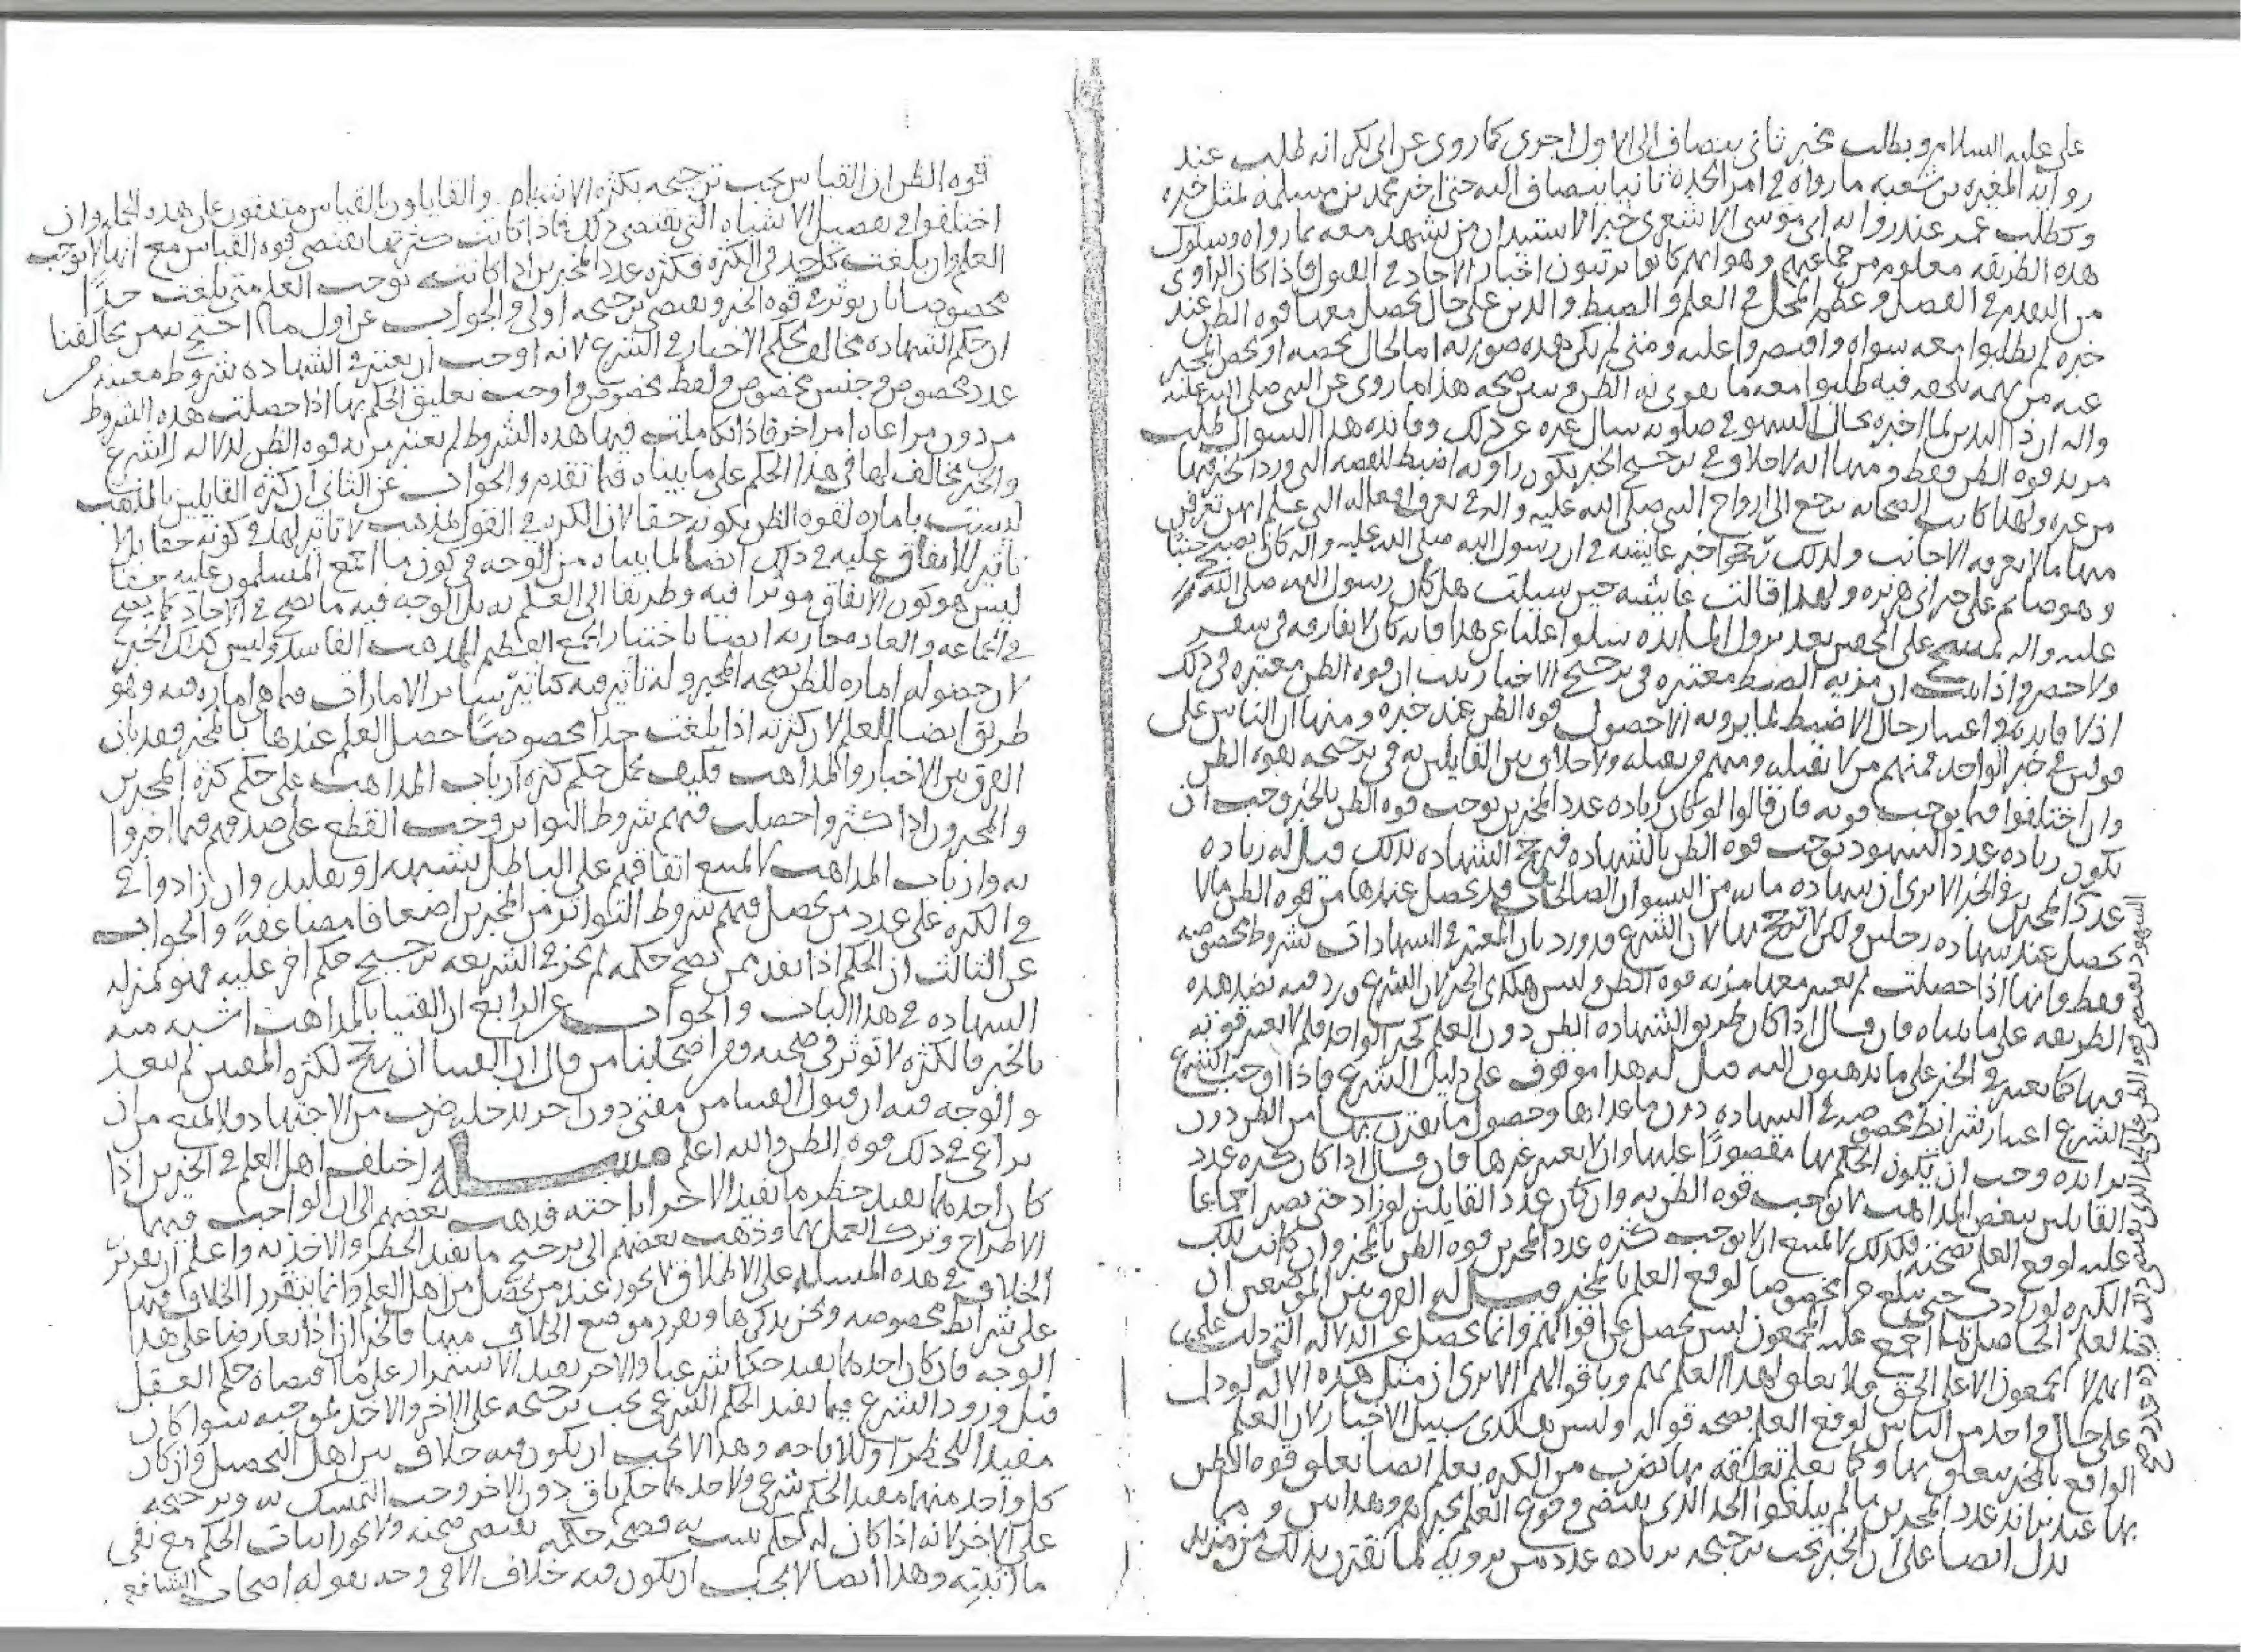 على عليه السلام ويطلب بخبر ثاني ينضاف إلى الاول اجرى كما روى عن ابى بكر انه طلب عند
رواية المغيرة بن شعبه ما رواه في امر الجدة ثانيا ينضاف اليه حتى اخبر محمد بن مسلمة بمثل خبره
وكطلب عمر عند رواية ابى موسى الاشعرى خبر الاستيذان من يشهد معه بما رواه وسلوك
هذه الطريقه معلوم من جماعتهم وهو انهم كانوا يرتبون اخبار الاحاد في القبول فاذا كان الراوى
من التقدم في الفضل وعظم المحل في العلم والضبط والدين على حال يحصل معها قوه الظن عند
خبره لم يطلبوا معه سواه واقتصروا عليه ومتى لم يكن هذه صورته اما لحال يخصه او يخص المخبر
عنه من تهمه تلحقه فيه طلبوا معه ما يقوى به الظن وبين صحه هذا ما روى عن النبى صلى الله عليه
واله ان ذا اليدين لما اخبره بحال السهو في صلوته سال غيره عن ذلك وفائده هذا السوال طلب
مزيد قوه الظن فقط ومنها انه لا خلاف في ترجيح الخبر بكون راويه اضبط للقصه التى ورد الخبر فيها
من غيره ولهذا كانت الصحابه ترجع الى ازواج النبى صلى الله عليه واله في تعرف افعاله التى علم انهن تعرفن
منها ما لا يعرفه الاجانب ولذلك رجحوا خبر عايشه في ان رسول الله صلى الله عليه واله كان يصبح جنبا
وهو صايم على خبر ابى هريره ولهذا قالت عايشه حين سيلت هل كان رسول الله صلى الله
عليه واله يمسح على الخفين بعد نزول المايده سلوا عليا عن هذا فانه كان لا يفارقه في سفر
ولا حضر واذا ثبت ان مزيه الضبط معتبره في ترجيح الاخبار ثبت ان قوه الظن معتبره في ذلك
اذ لا فايده في اعتبار حال الاضبط لما يرويه الا حصول قوه الظن عند خبره ومنها ان الناس على
قولين في خبر الواحد فمنهم من لا يقبله ومنهم من يقبله ولا خلاف بين القايلين به في ترجيحه بقوه الظن
وان اختلفوا فيما يوجب قوته فان قالوا لو كان زياده عدد المخبرين يوجب قوه الظن بالخبر وجب ان
يكون زياده عدد الشهود توجب قوه الظن بالشهاده فترجح الشهاده بذلك قيل له زياده
عدد المخبرين في الخبر الا ترى ان شهاده مايه من النسوان الصالحات قد يحصل عندها من قوه الظن ما لا
يحصل عند شهاده رجلين ولكن لا ترجح بها لان الشرع قد ورد بان المعتبر في الشهادات شروط مخصوصه
فقط وانها اذا حصلت لم يعتبر معها مزيه قوه الظن وليس هكذى الخبر لان الشرع ورد فيه بضد هذه
الطريقه على ما بيناه فان قال اذا كان طريق الشهاده الظن دون العلم كخبر الواحد فلم لا يعتبر قوته
فيها كما يعتبر في الخبر على ما تذهبون اليه قيل له هذا موقوف على دليل الشرع فاذا اوجب الشرع
اعتبار شرائط مخصوصه في الشهاده دون ما عداها وحصول ما يقترن بها من الظن دون
تزايده وجب ان يكون الحكم بها مقصورا عليها وان لا يعتبر غيرها فان قال اذا كان كثره عدد
القايلين ببعض المذاهب لا توجب قوه الظن به وان كان عدد القايلين لو زاد حتى يصير اجماعا
عليه لوقع العلم بصحته فكذلك لا يمتنع ان لا توجب كثره عدد المخبرين قوه الظن بالخبر وان كانت تلك
الكثره لو زادت حتى تبلغ قدرا مخصوصا لوقع العلم بالخبر قيل له الفرق بين الموضعين ان
العلم الحاصل بما اجمع عليه المجمعون ليس يحصل عن اقوالهم وانما يحصل عن الدلاله التى دلت على
انهم لا يجمعون الا على الحق ولا تعلق لهذا العلم بهم وباقوالهم الا ترى ان مثل هذه الدلاله لو دلت
على حال واحد من الناس لوقع العلم بصحه قوله وليس هكذى سبيل الاخبار لان العلم
الواقع بالخبر يتعلق بها وكما يعلم تعلقه بها بضرب من الكثره يعلم ايضا تعلق قوه الظن
بها عند تزايد عدد المخبرين ما لم يبلغوا الحد الذى يقتضى وقوع العلم بخبرهم وهذا بين ومما
يدل ايضا على ان الخبر يجب ترجيحه بزياده عدد من يرويه لما تقترن بذلك من مزيد
قوه الظن ان القياس يجب ترجيحه بكثره الاشباه والقايلون بالقياس متفقون على هذه الجمله وان
اختلفوا في تفصيل الاشباه التى تقتضى ذلك فاذا كانت كثرتها تقتضى قوه القياس مع انها لا توجب
العلم وان بلغت كل حد في الكثره فكثره عدد المخبرين اذا كانت توجب العلم متى بلغت حدا
مخصوصا بان يوثر في قوه الخبر وتقتضى ترجيحه اولى والجواب عن اول ما احتج به من يخالفنا
ان حكم الشهاده مخالف لحكم الاخبار في الشرع لانه اوجب ان يعتبر في الشهاده شروط معينه من
عدد مخصوص وجنس مخصوص ولفظ مخصوص واوجب تعليق الحكم بها اذا حصلت هذه الشروط
من دون مراعاه امر اخر فاذا تكاملت فيها هذه الشروط لم يعتبر مزيه قوه الظن لدلاله الشرع
والخبر مخالف لها في هذا الحكم على ما بيناه فيما تقدم والجواب عن الثانى ان كثره القايلين بالمذهب
ليست باماره لقوه الظن بكونه حقا لان الكثره في القول بالمذهب لا تاثير لها في كونه حقا بل لا
تاثير للاتفاق عليه في ذلك ايضا لما بيناه من الوجه في كون ما اجمع المسلمون عليه حقا
ليس هو كون الاتفاق موثرا فيه وطريقا الى العلم به بل الوجه فيه ما يصح في الاحاد كما يصح
في الجماعه والعاده جاريه ايضا باختيار الجمع العظيم للمذهب الفاسد وليس كذلك الخبر
لان حصوله اماره للظن بصحه المخبر وله تاثير فيه كتاثير ساير الامارات فيما هى اماره فيه وهو
طريق ايضا للعلم لان كثرته اذا بلغت حدا مخصوصا حصل العلم عندها بالمخبر فقد بان
الفرق بين الاخبار والمذاهب فكيف يحمل حكم كثره ارباب المذاهب على حكم كثره المخبرين
والمخبرون اذا كثروا حصلت فيهم شروط التواتر وجب القطع على صدقهم فيما اخبروا
به وارباب المذاهب لا يمتنع اتفاقهم على الباطل بشبهه او تقليد وان زادوا في
في الكثره على عدد من يحصل فيهم شروط التواتر من المخبرين اضعافا مضاعفة والجواب
عن الثالث ان الحكم اذا نفذ ممن يصح حكمه لم يجز في الشريعه ترجيح حكم اخر عليه فهو بمنزله
الشهاده في هذا الباب والجواب عن الرابع ان الفتيا بالمذاهب اشبه منه
بالخبر فالكثره لا توثر في صحته ومن اصحابنا من قال ان الفتيا ان رجح لكثره المفتين لم يبعد
والوجه فيه ان قبول الفتيا من مفتى دون اخر يدخله ضرب من الاجتهاد ولا يمتنع من ان
يراعى في ذلك قوه الظن والله اعلم مسـله اختلف اهل العلم في الخبرين اذا
كان احدهما يفيد حظر ما يفيد الاخر اباحته فذهب بعضهم الى ان الواجب فيهما
الاطراح وترك العمل بهما وذهب بعضهم الى ترجيح ما يفيد الحظر والاخذ به واعلم ان تقرير
الخلاف في هذه المسله على الاطلاق لا يجوز عند من يحصل من اهل العلم وانما يتقرر الخلاف فيها
على شرائط مخصوصه ونحن نذكرها ونفرد موضع الخلاف منها فالخبران اذا تعارضا على هذا
الوجه فان كان احدهما يفيد حكما شرعيا والاخر يفيد الاستمرار على ما اقتضاه حكم العقل
قبل ورود الشرع فما يفيد الحكم الشرعى يجب ترجيحه على الاخر والاخذ بموجبه سوا كان
مفيدا للحظر او للاباحه وهذا لا يجب ان يكون فيه خلاف بين اهل التحصيل وان كان
كل واحد منهما مفيد الحكم شرعى ولاحدهما حكم باق دون الاخر وجب التمسك به وترجيحه
على الاخر لانه اذا كان له حكم يثبت به فصحه حكمه تقتضى صحته ولا يجوز اثبات الحكم مع نفى
ما اثبته وهذا ايضا لا يجب ان يكون فيه خلاف الا في وجه يقوله اصحاب الشافعى